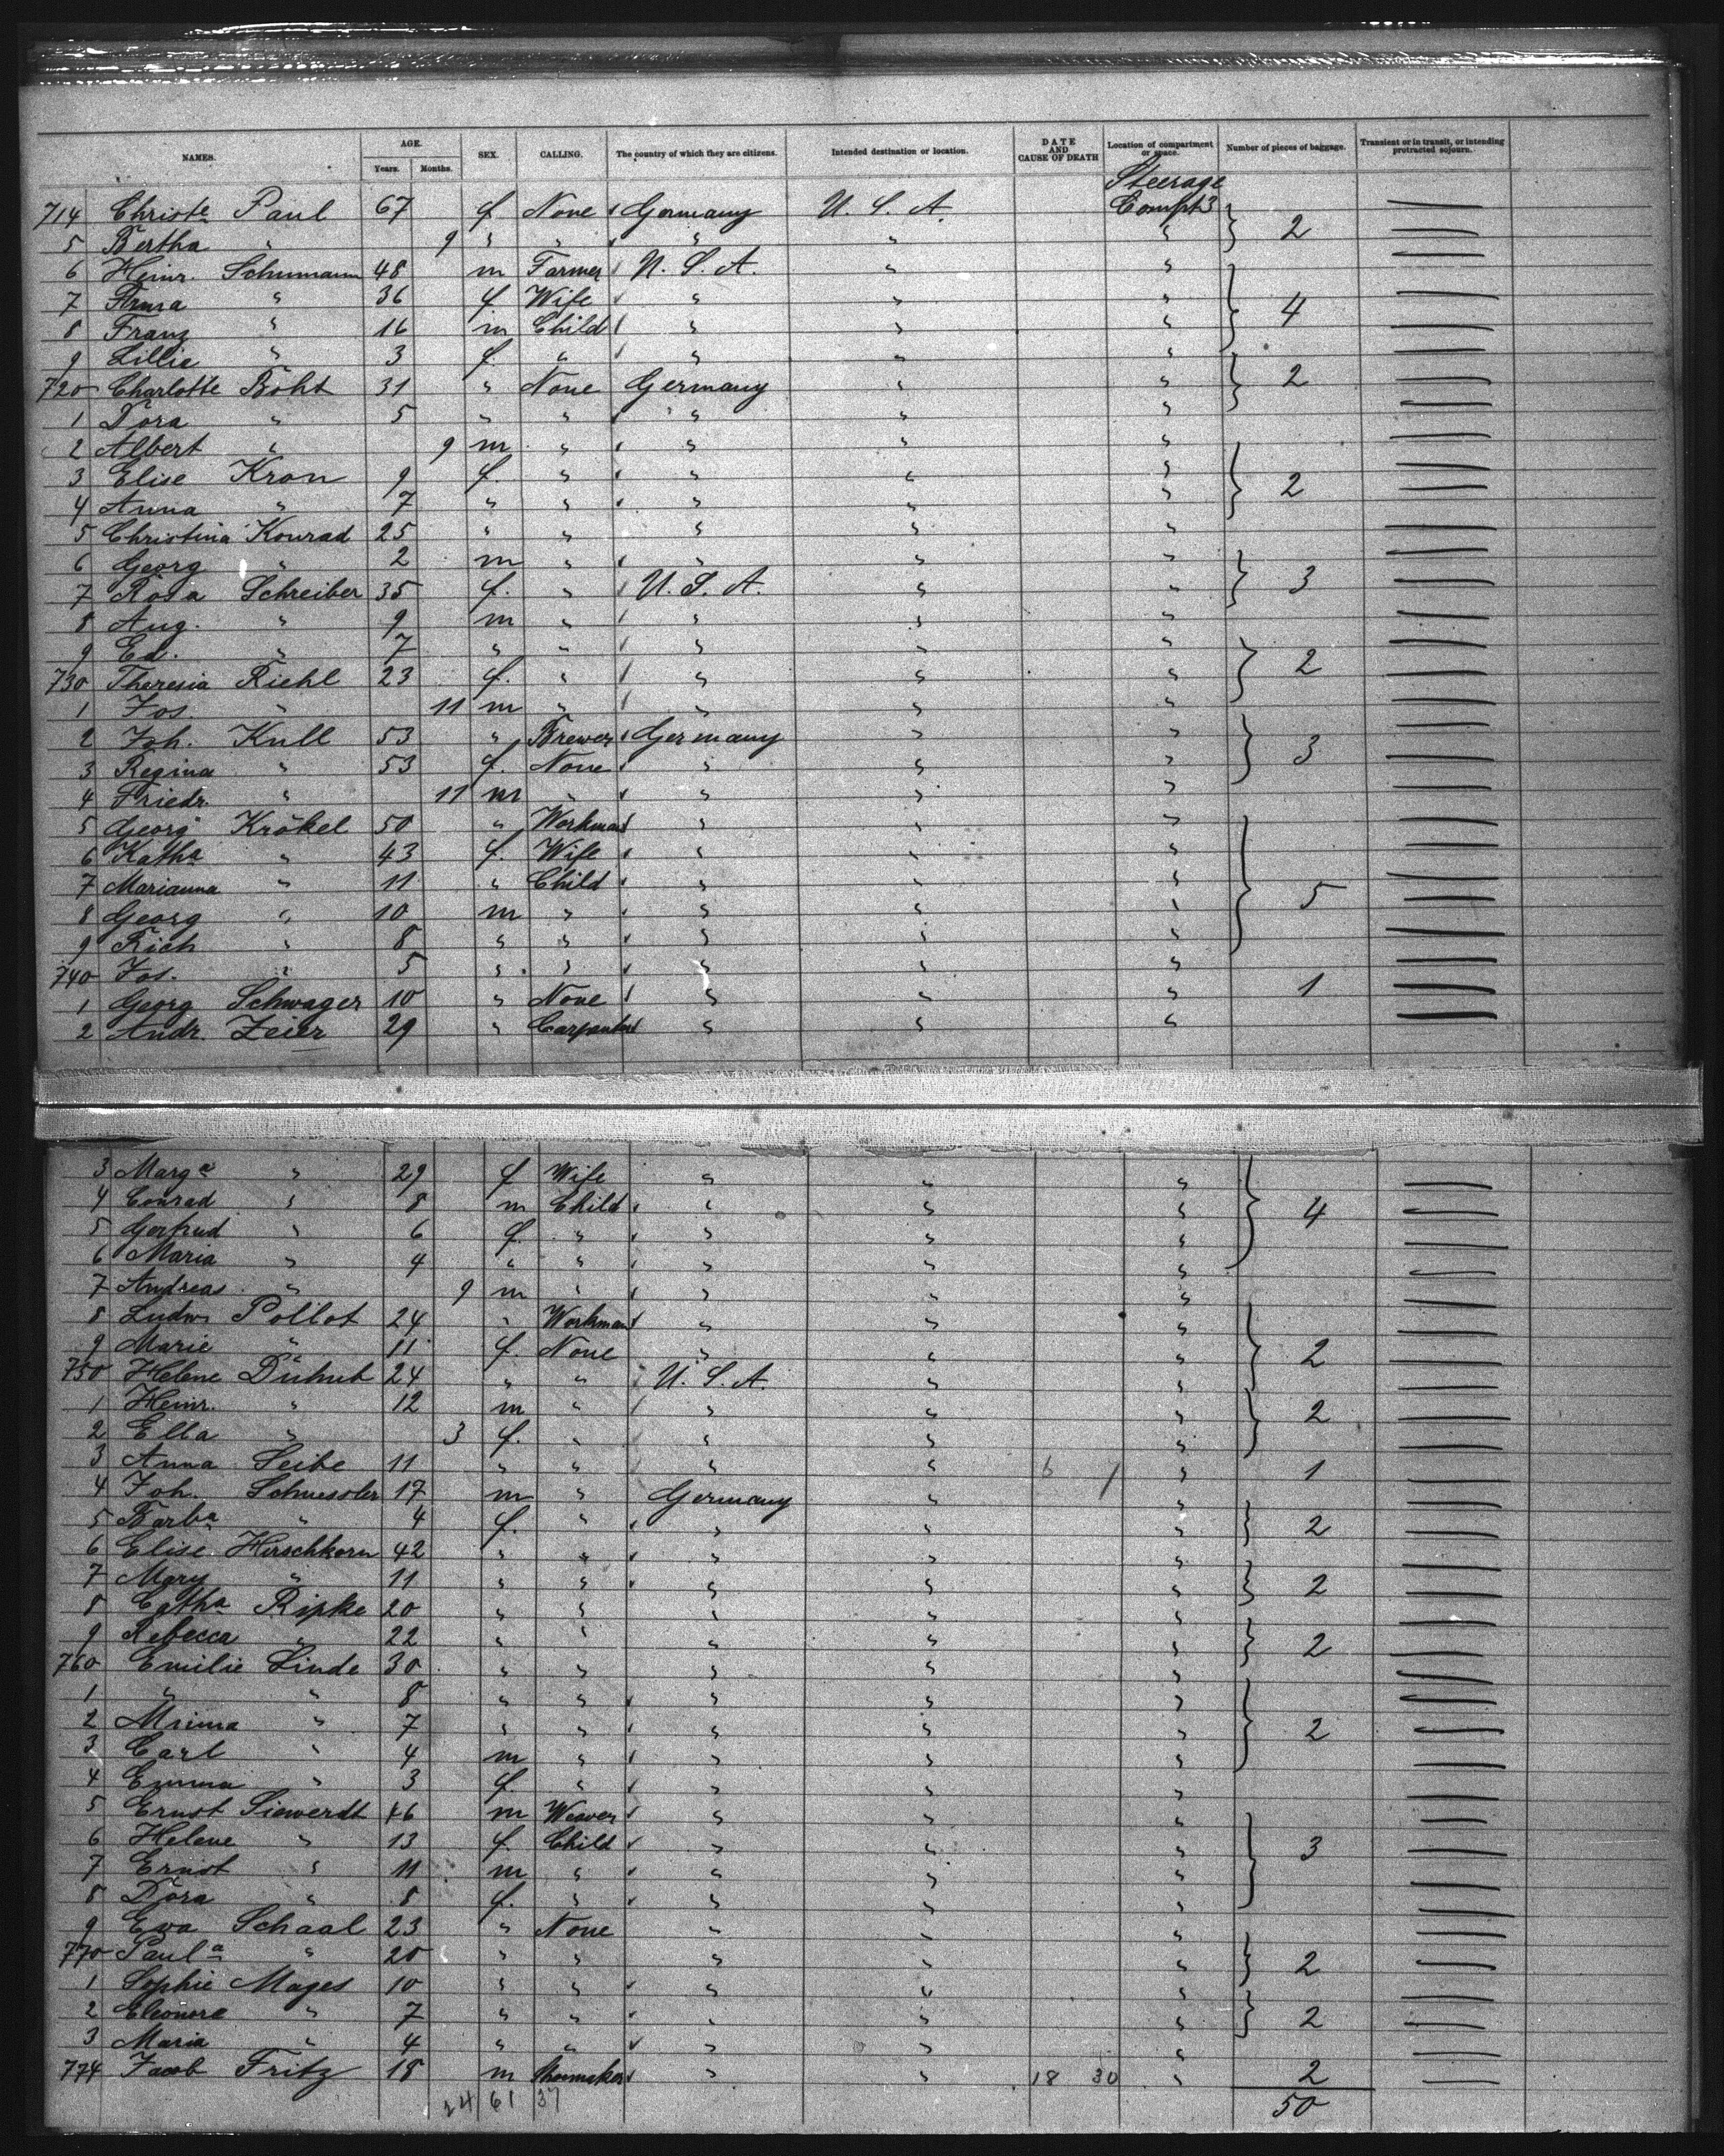 NAMES. AGE. Years. Months. SEX. CALLING. The country of which they are citizens. Intended destination or location. DATE AND CAUSE OF DEATH Location of compartment or space. Number of pieces of baggage. Transient or in transit, or intending protracted sojourn.
Steerage
714 Christe Paul 67 f None Germany U. S. A. Compt 3
5 Bertha " 9 " " " " " 2
6 Heinr. Schumann 48 m Farmer U. S. A. " "
7 Anna " 36 f Wife " " " 4
8 Franz " 16 m Child " " "
9 Lillie " 3 f. " " " "
720 Charlotte Boht 31 " None Germany " " 2
1 Dora " 5 " " " " "
2 Albert " 9 m " " " "
3 Elise Kron 9 f. " " " " 2
4 Anna " 7 " " " " "
5 Christina Konrad 25 " " " " "
6 Georg " 2 m " " " "
7 Rosa Schreiber 35 f. " U. S. A. " " 3
8 Aug. " 9 m " " " "
9 Ed. " 7 " " " " "
730 Theresia Riehl 23 f. " " " " 2
1 Jos. " 11 m " " " "
2 Joh. Kull 53 " Brewer Germany " "
3 Regina " 53 f. None " " " 3
4 Friedr. " 11 m " " " "
5 Georg Krökel 50 " Workman " " "
6 Katha " 43 f. Wife " " "
7 Marianna " 11 " Child " " " 5
8 Georg " 10 m " " " "
9 Rich " 8 " " " " "
740 Jos. " 5 " " " " "
1 Georg Schwager 10 " None " " " 1
2 Andr. Zeier 29 " Carpenter " " "
3 Marga " 29 f Wife " " "
4 Conrad " 8 m Child " " " 4
5 Gertrud " 6 f. " " " "
6 Maria " 4 " " " " "
7 Andreas " 9 m " " " "
8 Ludw. Pollot 24 " Workman " " "
9 Marie " 11 f. None " " " 2
750 Helene 24 " " U. S. A. " "
1 Heinr. " 12 m " " " " 2
2 Ella " 3 f. " " " "
3 Anna Seibe 11 " " " " " 1
4 Joh. Schuessler 17 m " Germany " "
5 Barba " 4 f. " " " " 2
6 Elise Hirschkorn 42 " " " " "
7 Mary " 11 " " " " " 2
8 Catha Ripke 20 " " " " "
9 Rebecca " 22 " " " " " 2
760 Emilie Linde 30 " " " " "
1 " " 8 " " " " "
2 Minna " 7 " " " " " 2
3 Carl " 4 m " " " "
4 Emma " 3 f. " " " "
5 Ernst Siewerdt 46 m Weaver " " "
6 Helene " 13 f. Child " " " 3
7 Ernst " 11 m " " " "
8 Dora " 8 f. " " " "
9 Eva Schaal 23 " None " " "
770 Paula " 20 " " " " " 2
1 Sophie Mages 10 " " " " "
2 Eleonore " 7 " " " " " 2
3 Maria " 4 " " " " "
774 Jacob Fritz 18 m Shoemaker " " 18 30 " 2
24 61 37 50